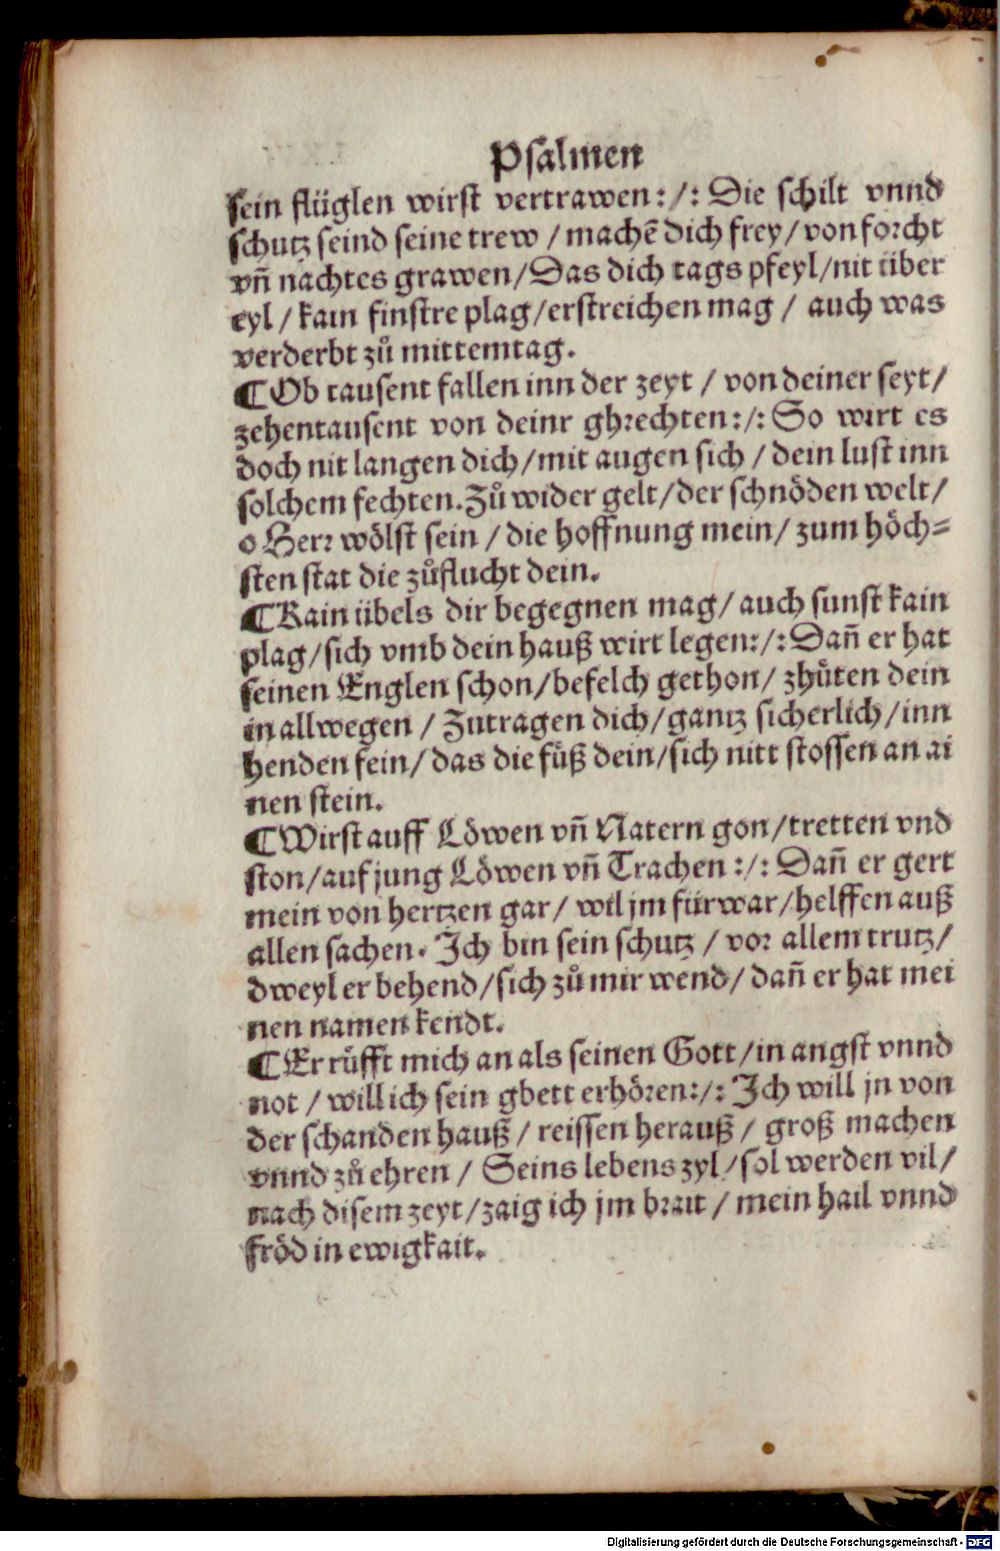 Psalmen
sein flüglen wirst vertrawen:/: Die schilt vnnd
schutz seind seine trew / machẽ dich frey / von forcht
vñ nachtes grawen / Das dich tags pfeyl / nit über
eyl / kain finstre plag / erstreichen mag / auch was
verderbt zů mittemtag.
¶ Ob tausent fallen inn der zeyt / von deiner seyt /
zehentausent von deinr ghrechten:/: So wirt es
doch nit langen dich / mit augen sich / dein lust inn
solchem fechten. Zů wider gelt / der schnöden welt /
o Herr wölst sein / die hoffnung mein / zum höch⸗
sten stat die zůflucht dein.
¶ Kain übels dir begegnen mag / auch sunst kain
plag / sich vmb dein hauß wirt legen:/: Dañ er hat
seinen Englen schon / befelch gethon / zhůten dein
in allwegen / Zutragen dich / gantz sicherlich / inn
henden fein / das die füß dein / sich nitt stossen an ai
nen stein.
¶ Wirst auff Löwen vñ Natern gon / tretten vnd
ston / auf jung Löwen vñ Trachen :/: Dañ er gert
mein von hertzen gar / wil jm fürwar / helffen auß
allen sachen. Ich bin sein schutz / vor allem trutz /
dweyl er behend / sich zů mir wend / dañ er hat mei
nen namen kendt.
¶ Er růfft mich an als seinen Gott / in angst vnnd
not / will ich sein gbett erhören:/: Ich will jn von
der schanden hauß / reissen herauß / groß machen
vnnd zů ehren / Seins lebens zyl / sol werden vil /
nach disem zeyt / zaig ich jm brait / mein hail vnnd
fröd in ewigkait.
Digitalisierung gefördert durch die Deutsche Forschungsgemeinschaft - DFG